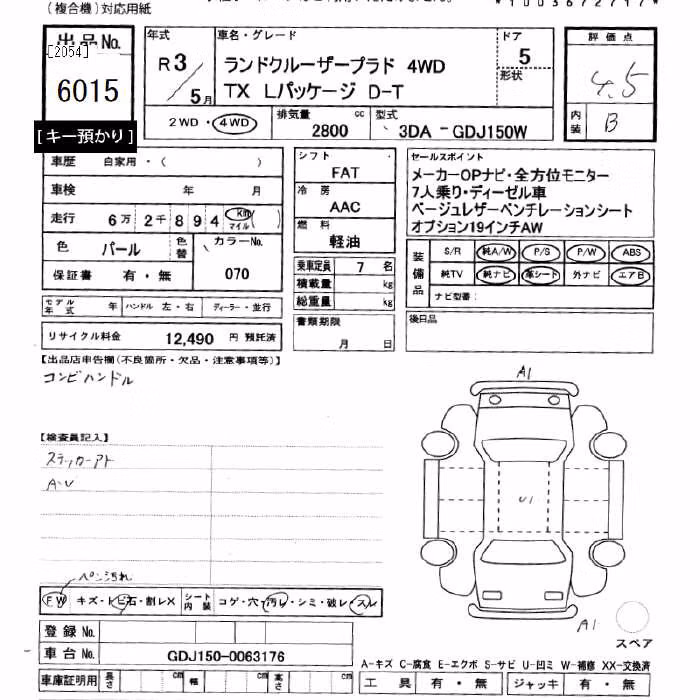 (複合機)対応用紙
出品No.
[2054]
6015
[キー預かり]
年式
R3/5月
車名・グレード
ランドクルーザープラド 4WD
TX Lパッケージ D-T
ドア
5
形状
評価点
4.5
内装
B
2WD・4WD
排気量
2800 cc
型式
3DA-GDJ150W
車歴 自家用・( )
車検 年 月
走行 6万2千894 Km マイル ( )
色 パール 色替 カラーNo.
保証書 有・無 070
モデル年式 年 ハンドル 左・右 ディーラー・並行
リサイクル料金 12,490 円 預託済
シフト
FAT
冷房
AAC
燃料
軽油
乗車定員 7 名
積載量 kg
総重量 kg
書類期限
月 日
セールスポイント
メーカーOPナビ・全方位モニター
7人乗り・ディーゼル車
ベージュレザーベンチレーションシート
オプション19インチAW
装備品
S/R 純A/W P/S P/W ABS
純TV 純ナビ 革シート 外ナビ エアB
ナビ型番:
後日品
【出品店申告欄(不良箇所・欠品・注意事項等)】
コンビハンドル
【検査員記入】
ステッカーアト
A・U
ペン汚れ
FW キズ・トビ石・割レX シート内装 コゲ・穴・汚レ・シミ・破レ・スレ
登録No.
車台No. GDJ150-0063176
車庫証明用 長さ cm 幅 cm 高さ cm
A1
U1
A1
スペア
A-キズ C-腐食 E-エクボ S-サビ U-凹ミ W-補修 XX-交換済
工具 有・無 ジャッキ 有・無